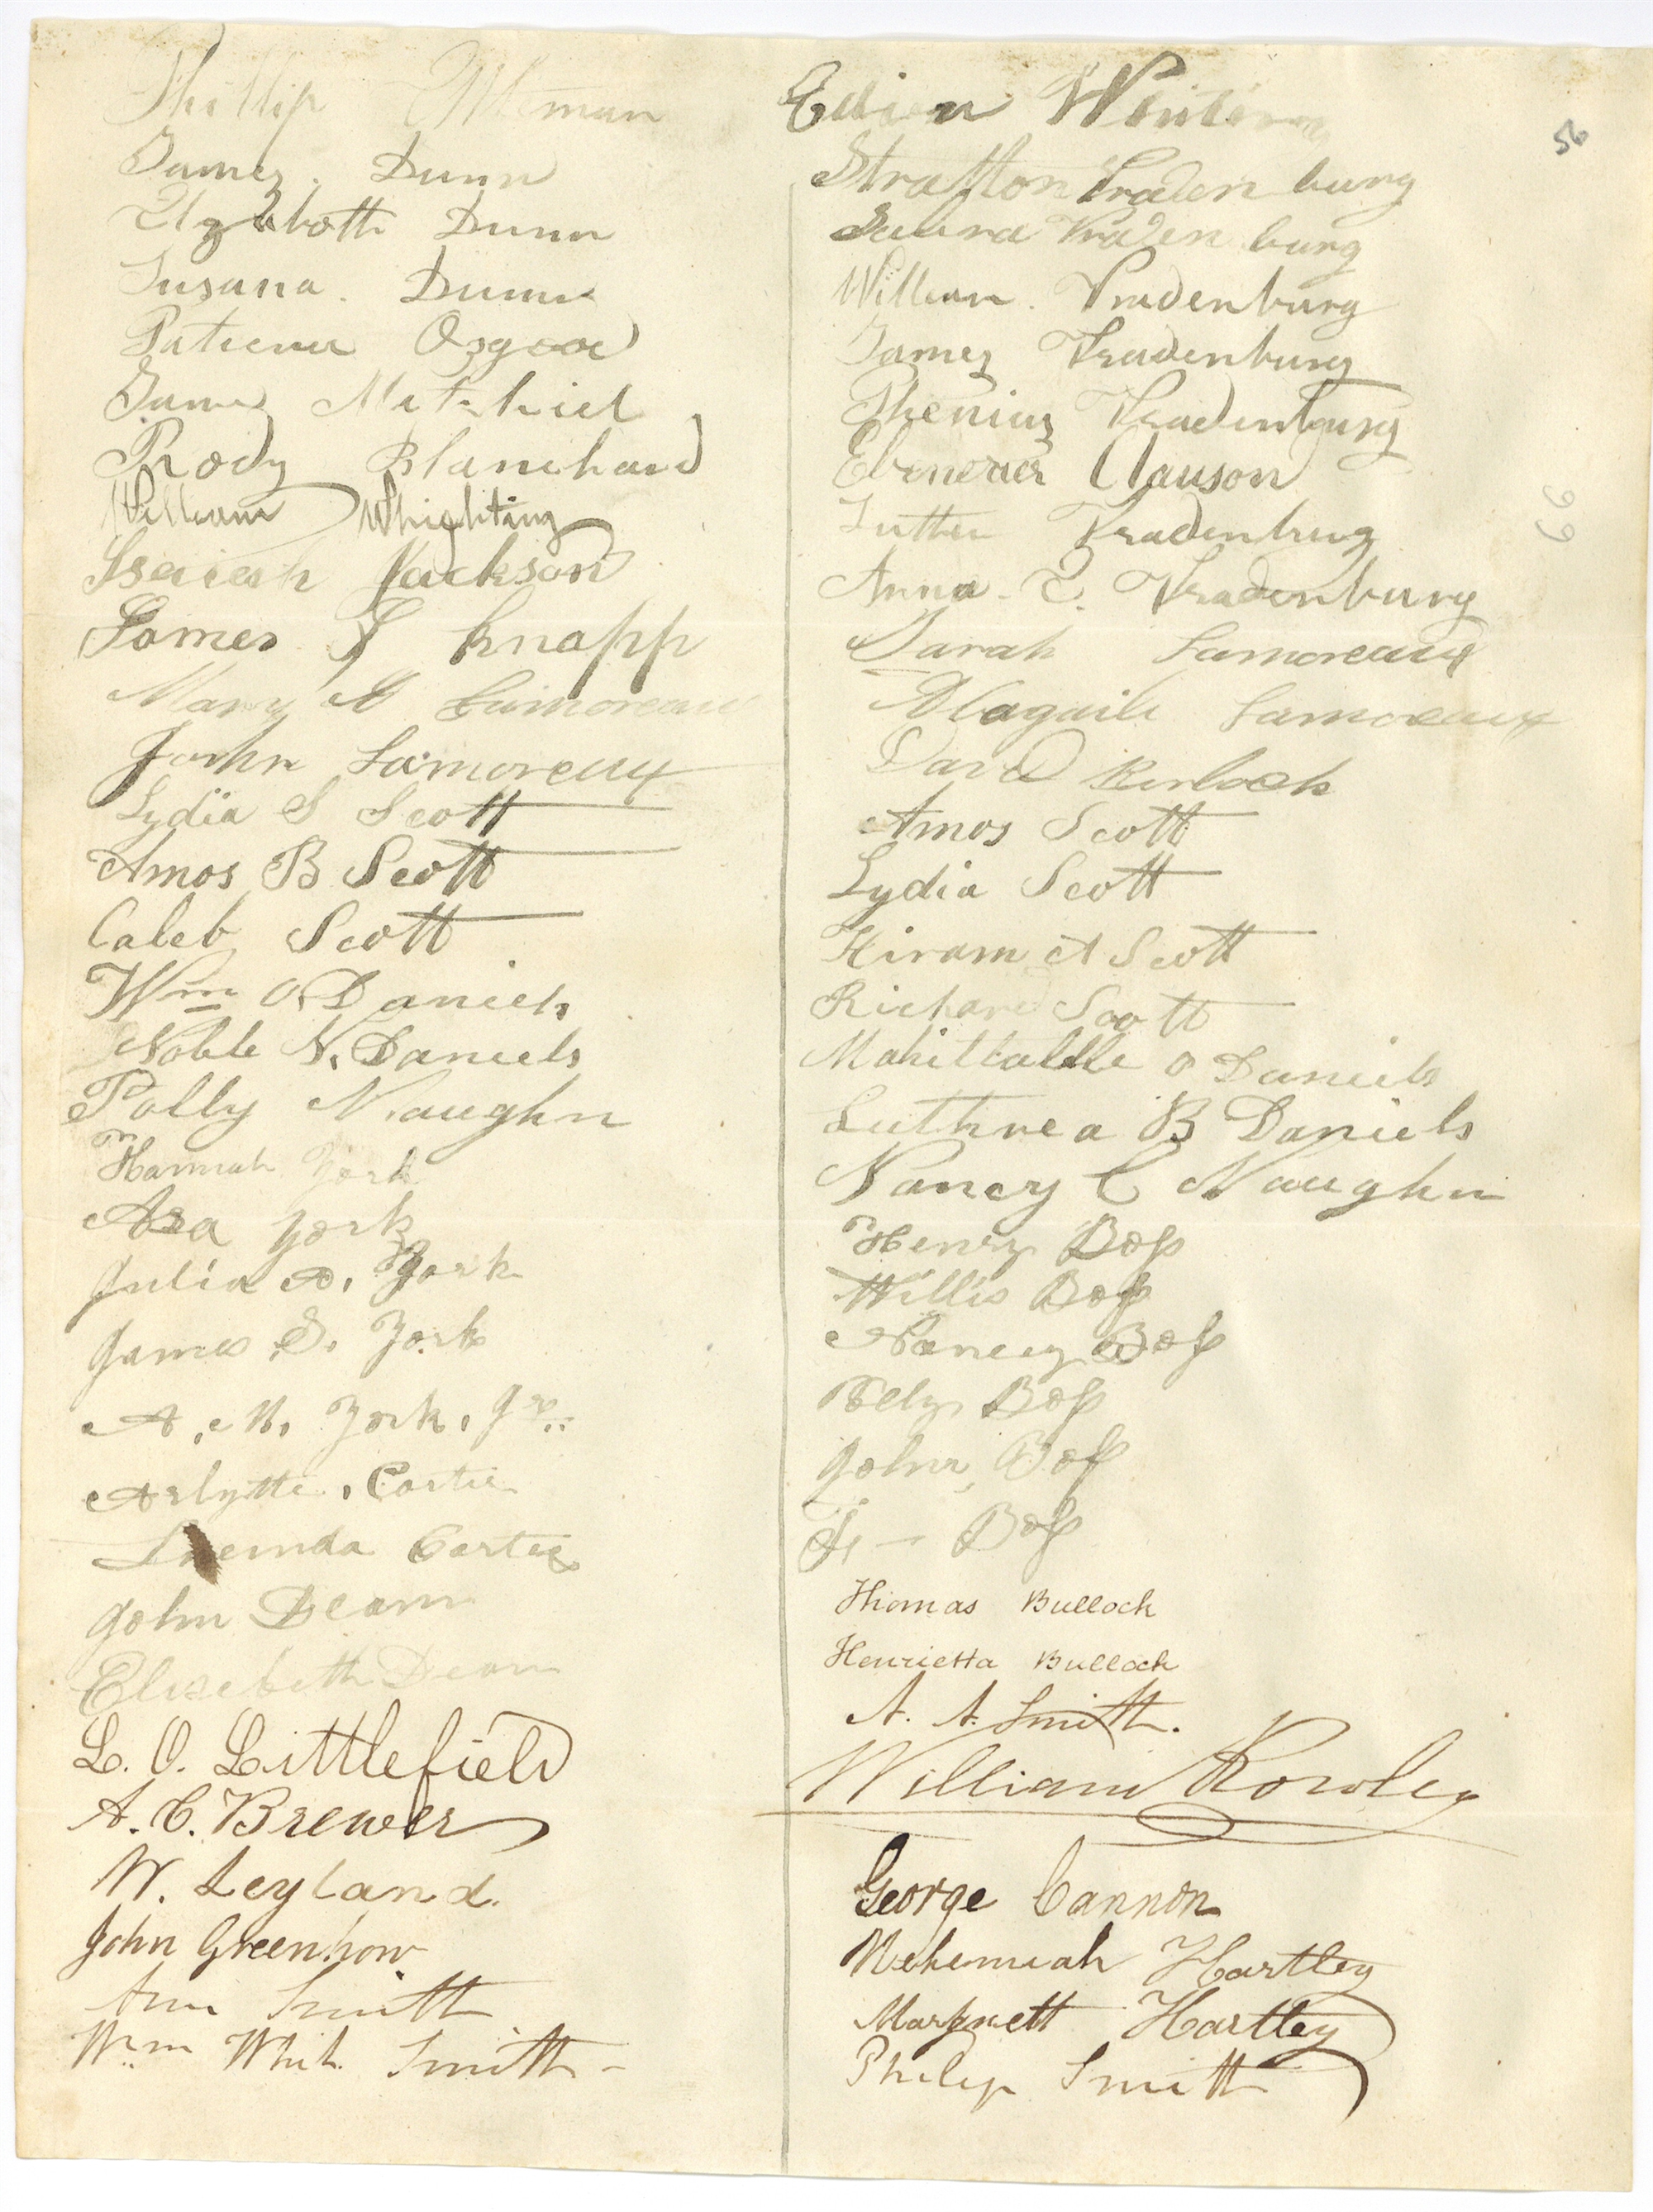 Phillip
James. Dunn
Elzaboth Dunn
Susana. Dunn
Osgood
Blanchard
William Whighting
Isaiah Jackson
James J Knapp
Mary M Lamoreau
John Lamoreaux
Lydia S Scott
Amos B Scott
Caleb Scott
Wm O. Daniels
Noble N. Daniels
Polly Naughn
Hannah York
Asa York
Julia A. York
James S. York
A. M. York, Jr.
Carter
John Deam
Elizebeth Deam
L. O. Littlefield
A. C. Brewer
W. Leyland.
John Greenhow
Ann Smith
Wm Whit. Smith
56
66
Stratton Vraden burg
Vraden burg
William. Vradenburg
James Vradenburg
Vradenburg
Ebenezer Clauson
Vradenburg
Anna. E. Vradenburg
Sarah Lamoreaux
Lamoreaux
David
Amos Scott
Lydia Scott
Hiram A Scott
Richard Scott
O Daniels
B Daniels
Nancy C Naughn
Henry Boss
Willis Boss
Nancy Boss
Boss
John Boss
Boss
Thomas Bullock
Henrietta Bullock
A. A. Smith.
William Rowley
George Cannon
Nehemiah Hartley
Hartley
Philip Smith